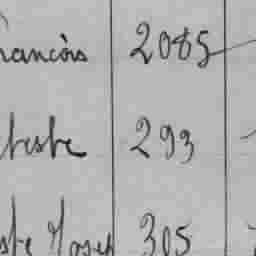 rancois 2085
tiste 293
ste Joseph 305